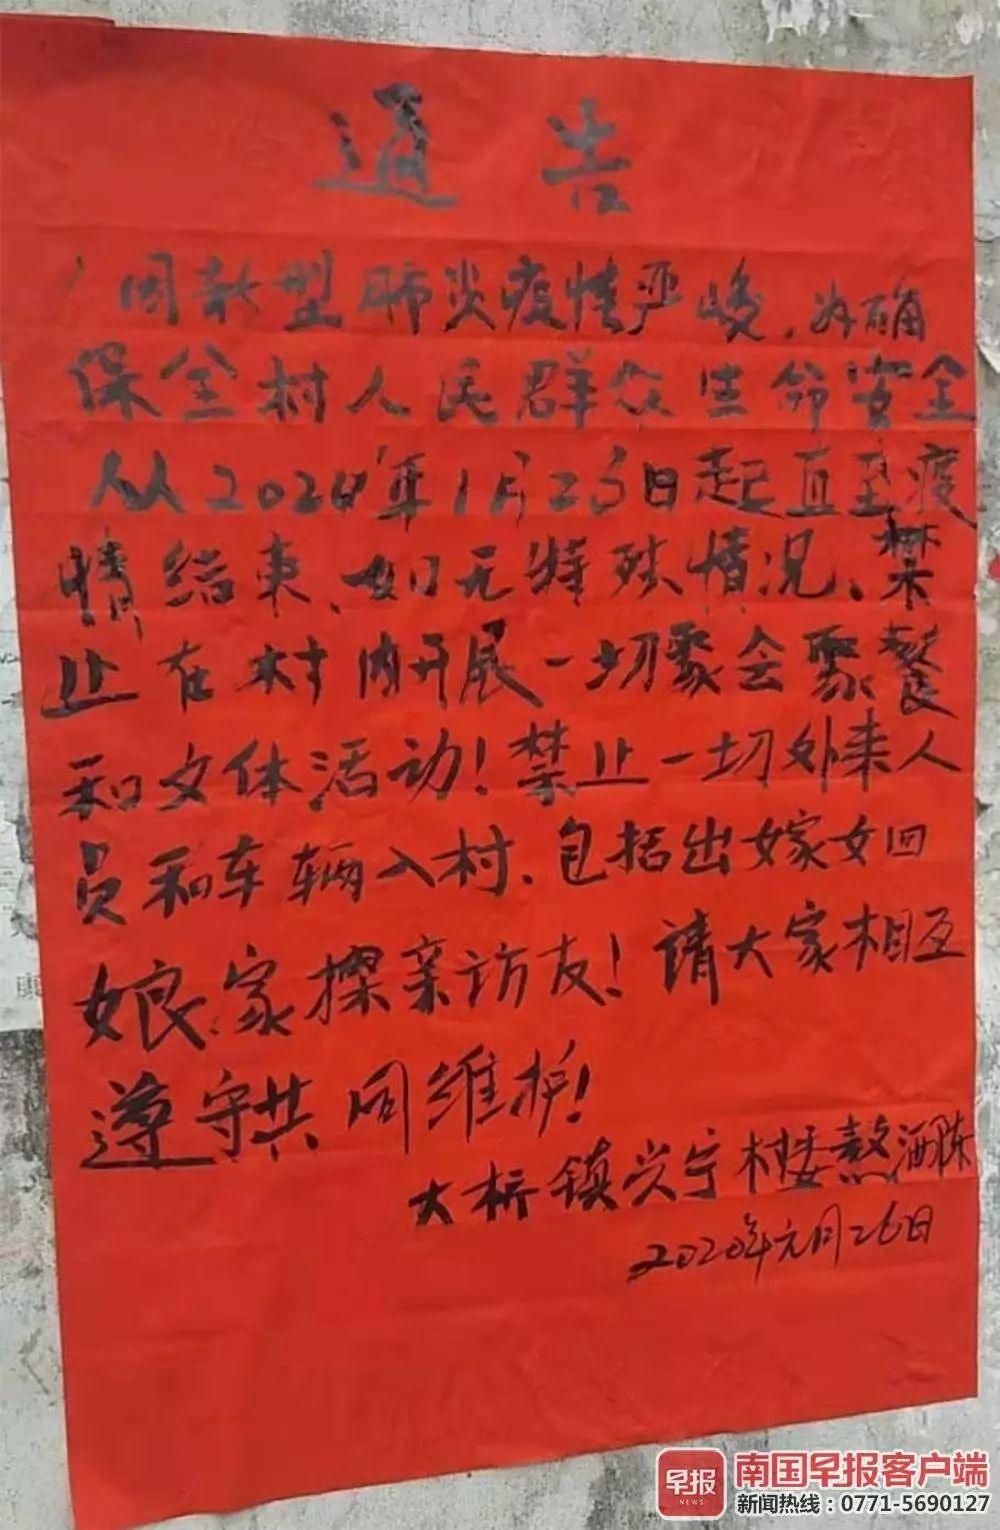 通告
因新型肺炎疫情严峻，为确
保全村人民群众生命安全
从2020年1月26日起直至疫
情结束、如无特殊情况、禁
止在村内开展一切聚会聚餐
和文体活动！禁止一切外来人
员和车辆入村、包括出嫁女回
娘家探亲访友！请大家相互
遵守共同维护！
大桥镇兴宁村委熬洒陈
2020年元月26日
早报
NEWS
南国早报客户端
新闻热线：0771-5690127